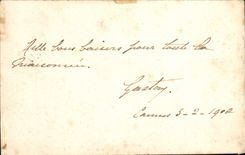 Mille bons baisers pour toute la
maisonnée.
Gaston.
Cannes 3-2-1902